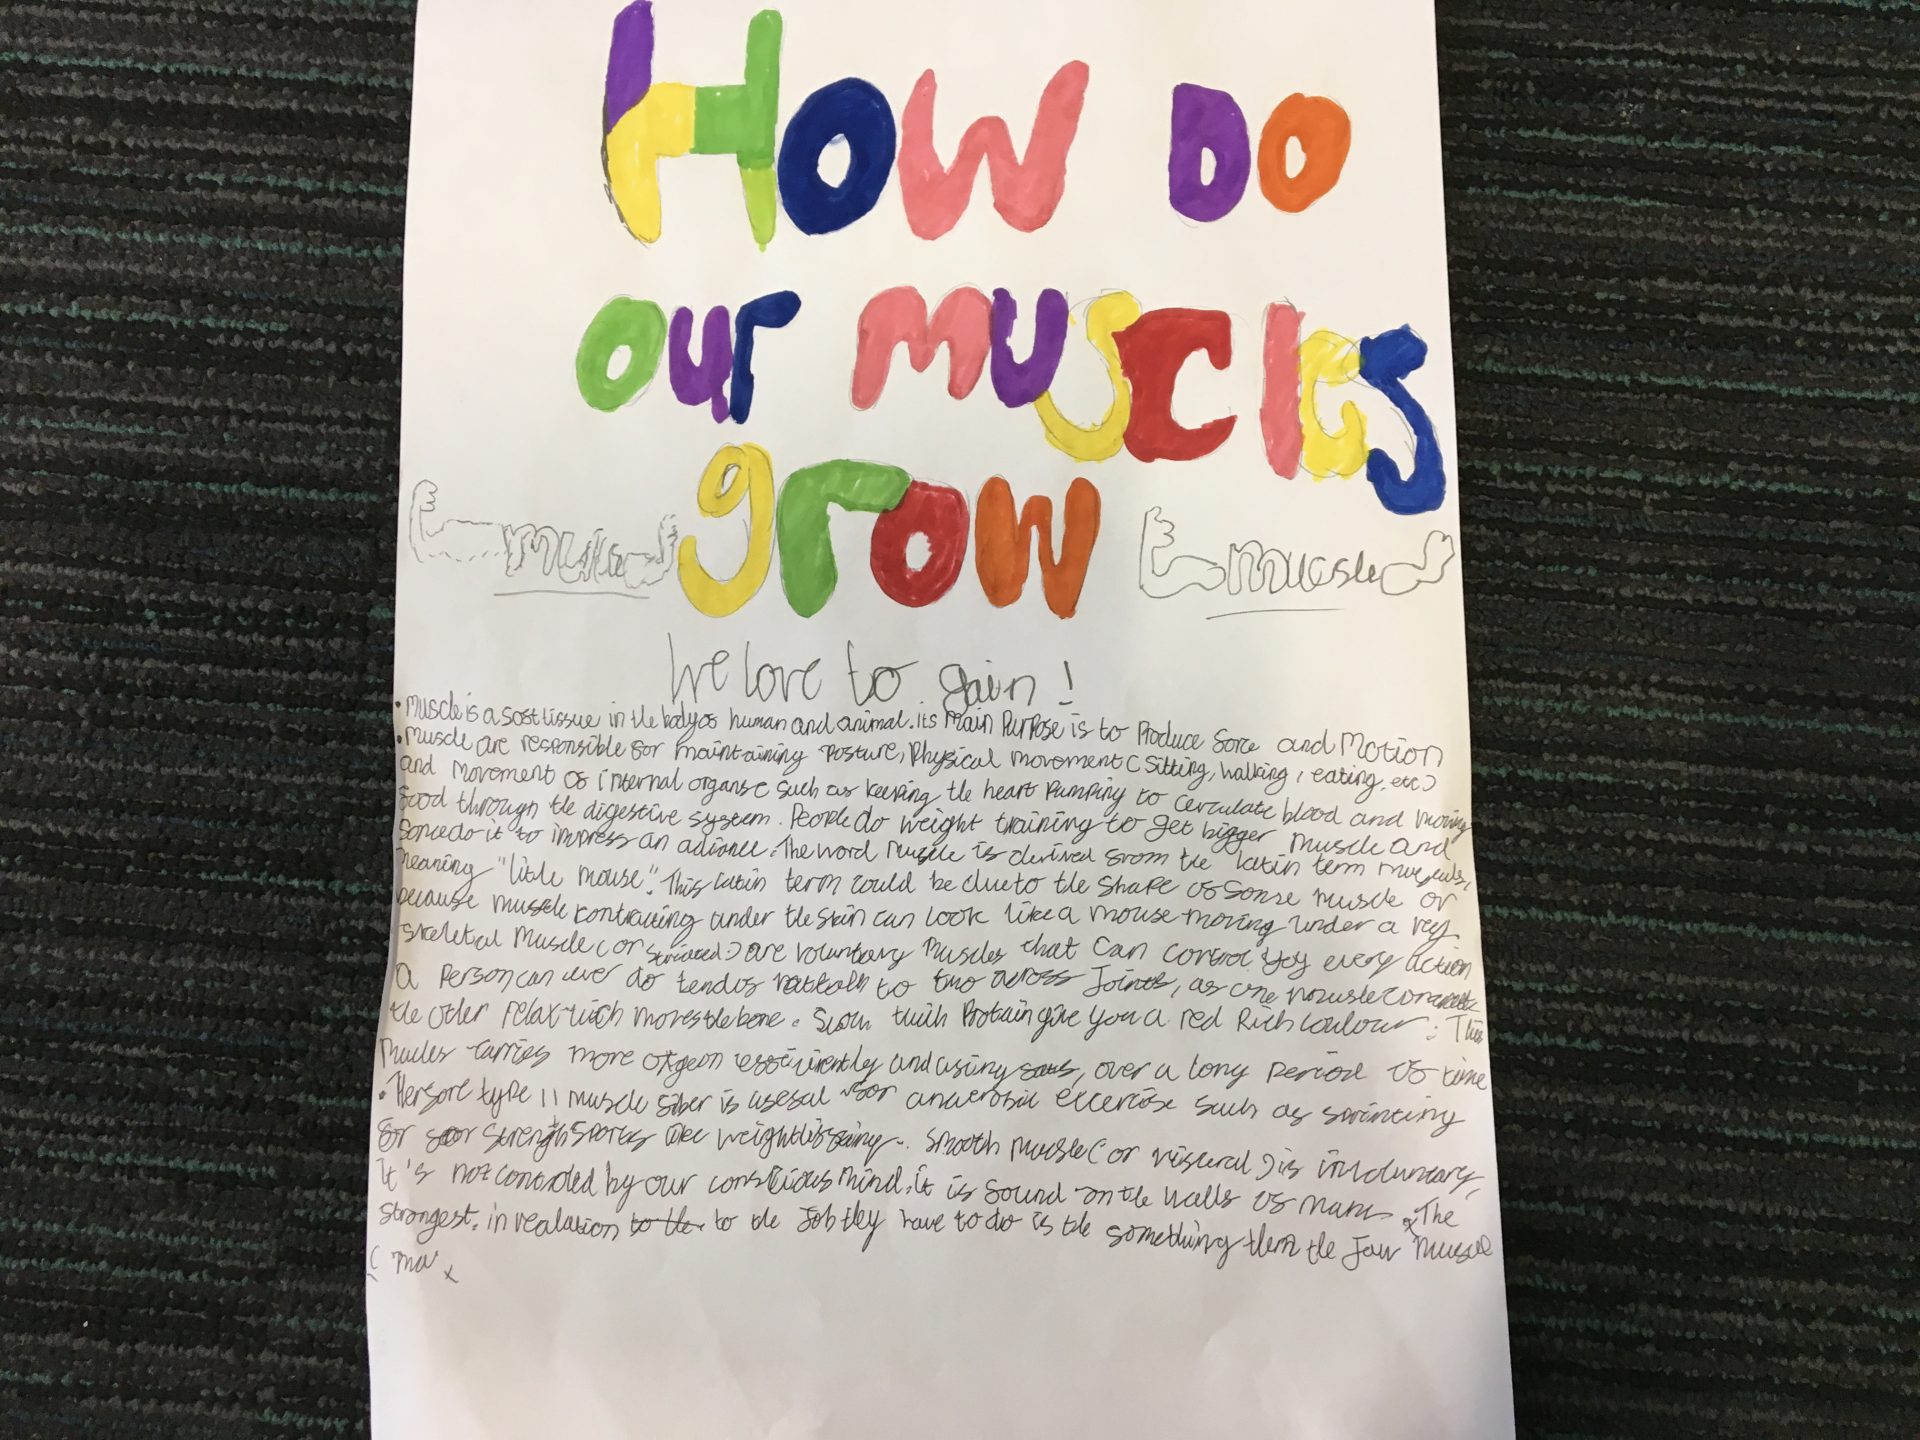 HOW DO
our muscles
grow
muscle
We love to gain!
• Muscle is a sost tissue in the body os human and animal. its main Purpose is to Produce sorce and Motion
• Muscle are responsible sor maintaining Posture, Physical movement (sitting, walking, eating, etc)
and movement os internal organs (such as keeping the heart Pumping to cerculate blood and moving
sood through the digestive system. People do weight training to get bigger muscle and
do it to impress an adiance. The word Muscle is derived srom the latin term
meaning "little mouse". This latin term could be due to the shape os some muscle or
because muscle contracting under the skin can look like a mouse moving under a rug
skeletal Muscle (or ) are voluntary Muscles that can control every action
A Person can ever do tendos to two across Joints, as one muscle
the other relax which moves the bone. give you a red Rich coulour. This
carries more and using over a long Period os time
• type 11 muscle siber is usesul sor exercise such as sprinting
sor strength sports like . Smooth Muscle (or ) is involuntary,
it's not by our mind. it is sound on the walls os . The
strongest. in realation to the to the Job they have to do is the something them the Jaw
( ma